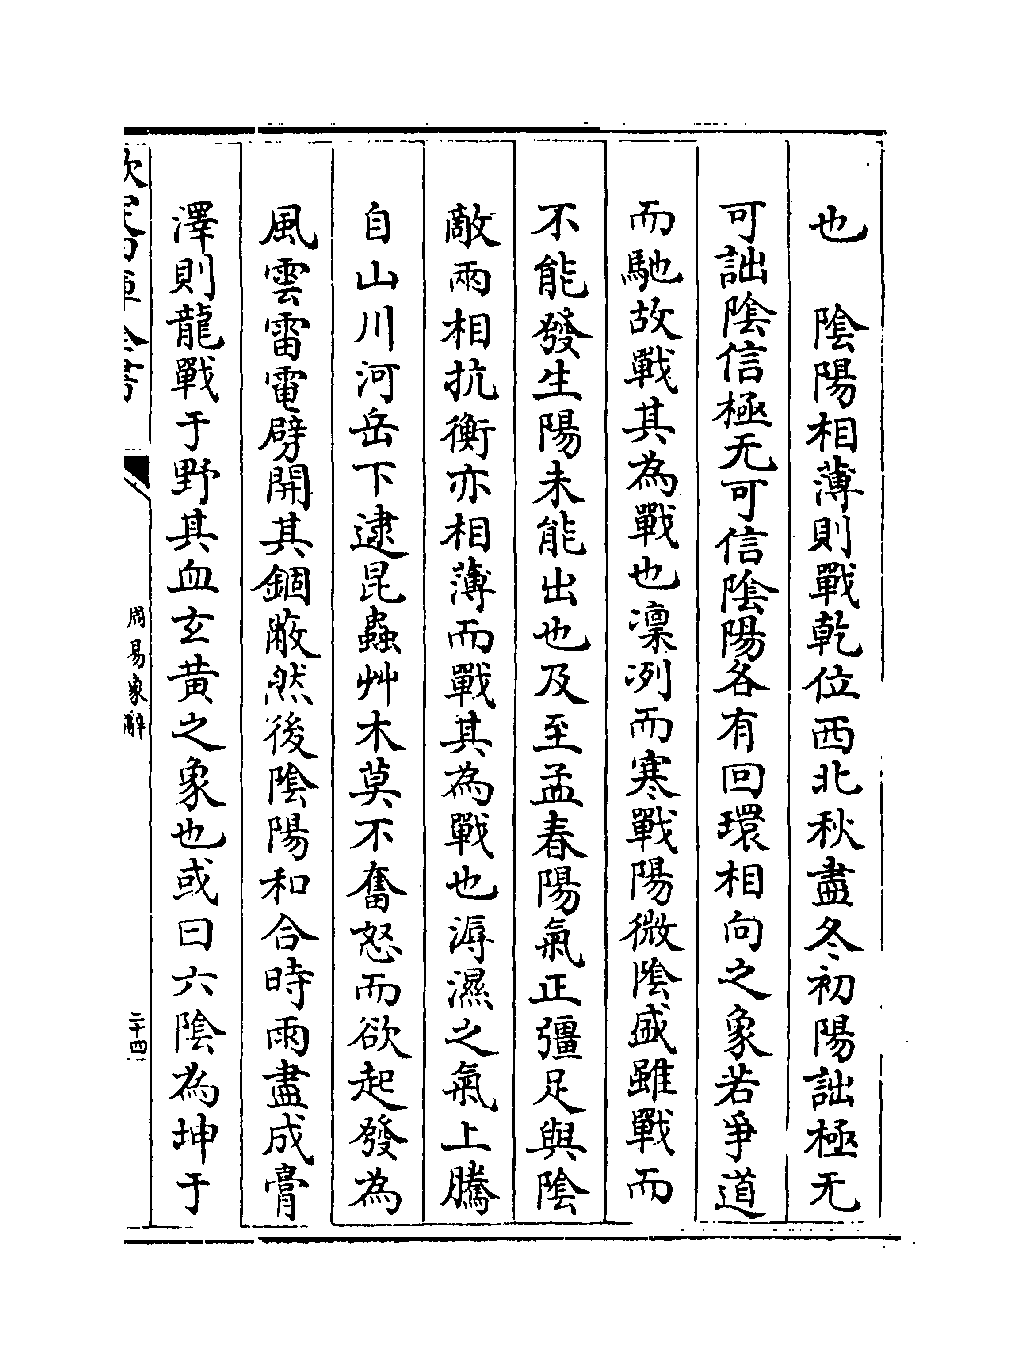 也　陰陽相薄則戰乾位西北秋盡冬初陽詘極无
可詘陰信極无可信陰陽各有回環相向之象若爭道
而馳故戰其為戰也凛冽而寒戰陽微陰盛雖戰而
不能發生陽未能出也及至孟春陽氣正彊足與陰
敵兩相抗衡亦相薄而戰其為戰也溽濕之氣上騰
自山川河岳下逮昆蟲艸木莫不奮怒而欲起發為
風雲雷電劈開其錮蔽然後陰陽和合時雨盡成膏
澤則龍戰于野其血玄黄之象也或曰六陰為坤于
欽定四庫全書
周易象辭
二十四